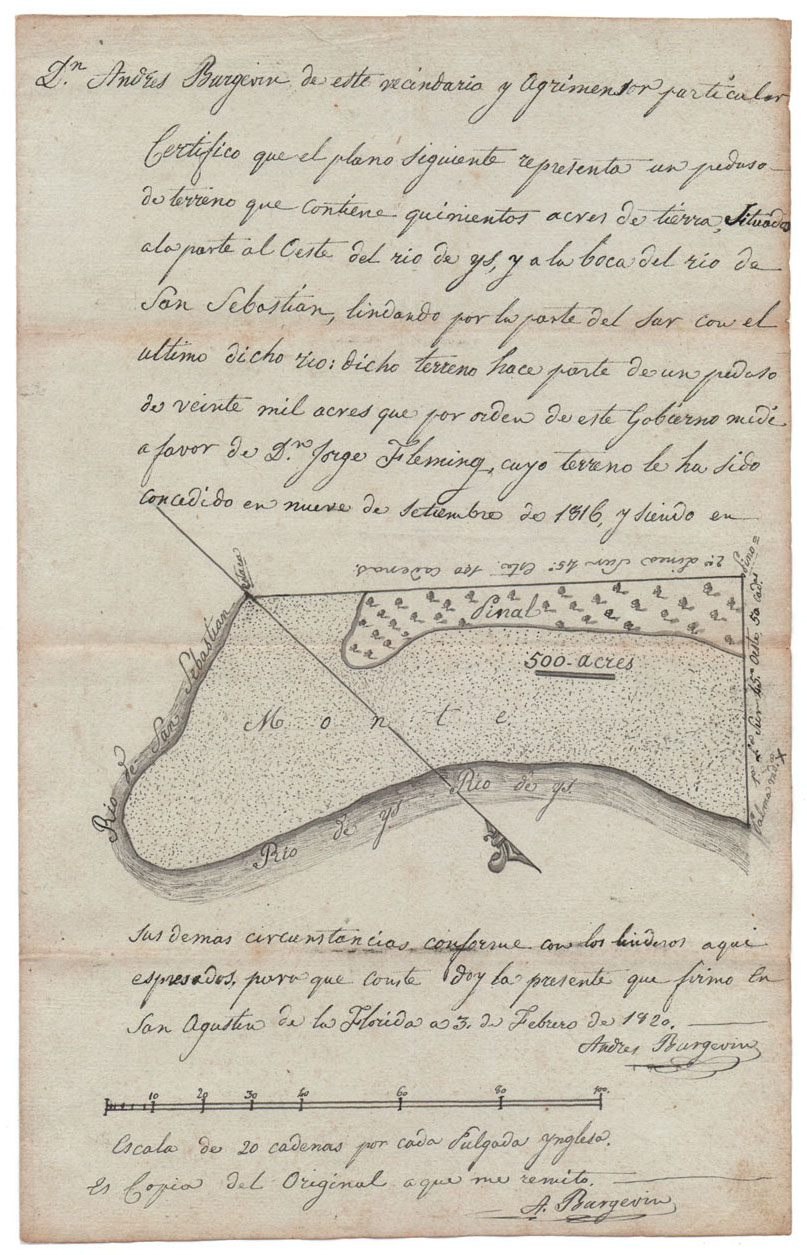 D.n Andres Burgevin de este vecindario y Agrimensor particular
Certifico que el plano siguiente representa un pedaso
de terreno que contiene quinientos acres de tierra, Situado
a la parte al Oeste del rio de ys, y a la boca del rio de
San Sebastian, lindando por la parte del Sur con el
ultimo dicho rio: dicho terreno hace parte de un pedaso
de veinte mil acres que por orden de este Gobierno medi
a favor de D.n Jorge Fleming, cuyo terreno le ha sido
concedido en nueve de setiembre de 1816, y siendo en
estaca
2.a linea Sur 45.° Este 100 cadenas.
Pino =
Pinal
500 acres
Monte
Rio de San Sebastian
Rio de ys
Rio de ys
1.a L.a Sur 45.° Oeste, 50 cad.s
Palma redia X
sus demas circunstancias conforme con los linderos aqui
espresados, para que conste doy la presente que firmo En
San Agustin de la Florida a 3. de Febrero de 1820.
Andres Burgevin
10 20 30 40 60 80 100.
Escala de 20 cadenas por cada Pulgada ynglesa.
Es Copia del Original a que me remito.
A. Burgevin